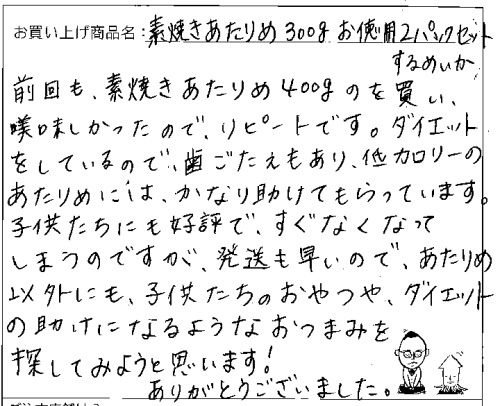 お買い上げ商品名：素焼きあたりめ300g お徳用2パックセット
するめいか
前回も、素焼きあたりめ400gのを買い、
美味しかったので、リピートです。ダイエット
をしているので、歯ごたえもあり、低カロリーの
あたりめには、かなり助けてもらっています。
子供たちにも好評で、すぐなくなって
しまうのですが、発送も早いので、あたりめ
以外にも、子供たちのおやつや、ダイエット
の助けになるようなおつまみを
探してみようと思います！
ありがとうございました。